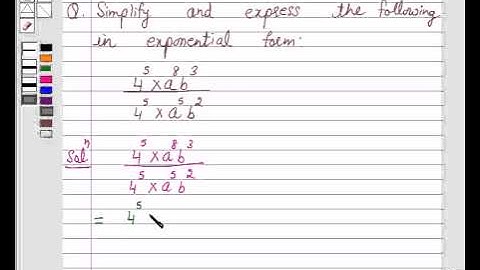 Q. Simplify and express the following
in exponential form:
4⁵ × a⁸b³
4⁵ × a⁵b²
Solⁿ 4⁵ × a⁸b³
4⁵ × a⁵b²
= 4⁵